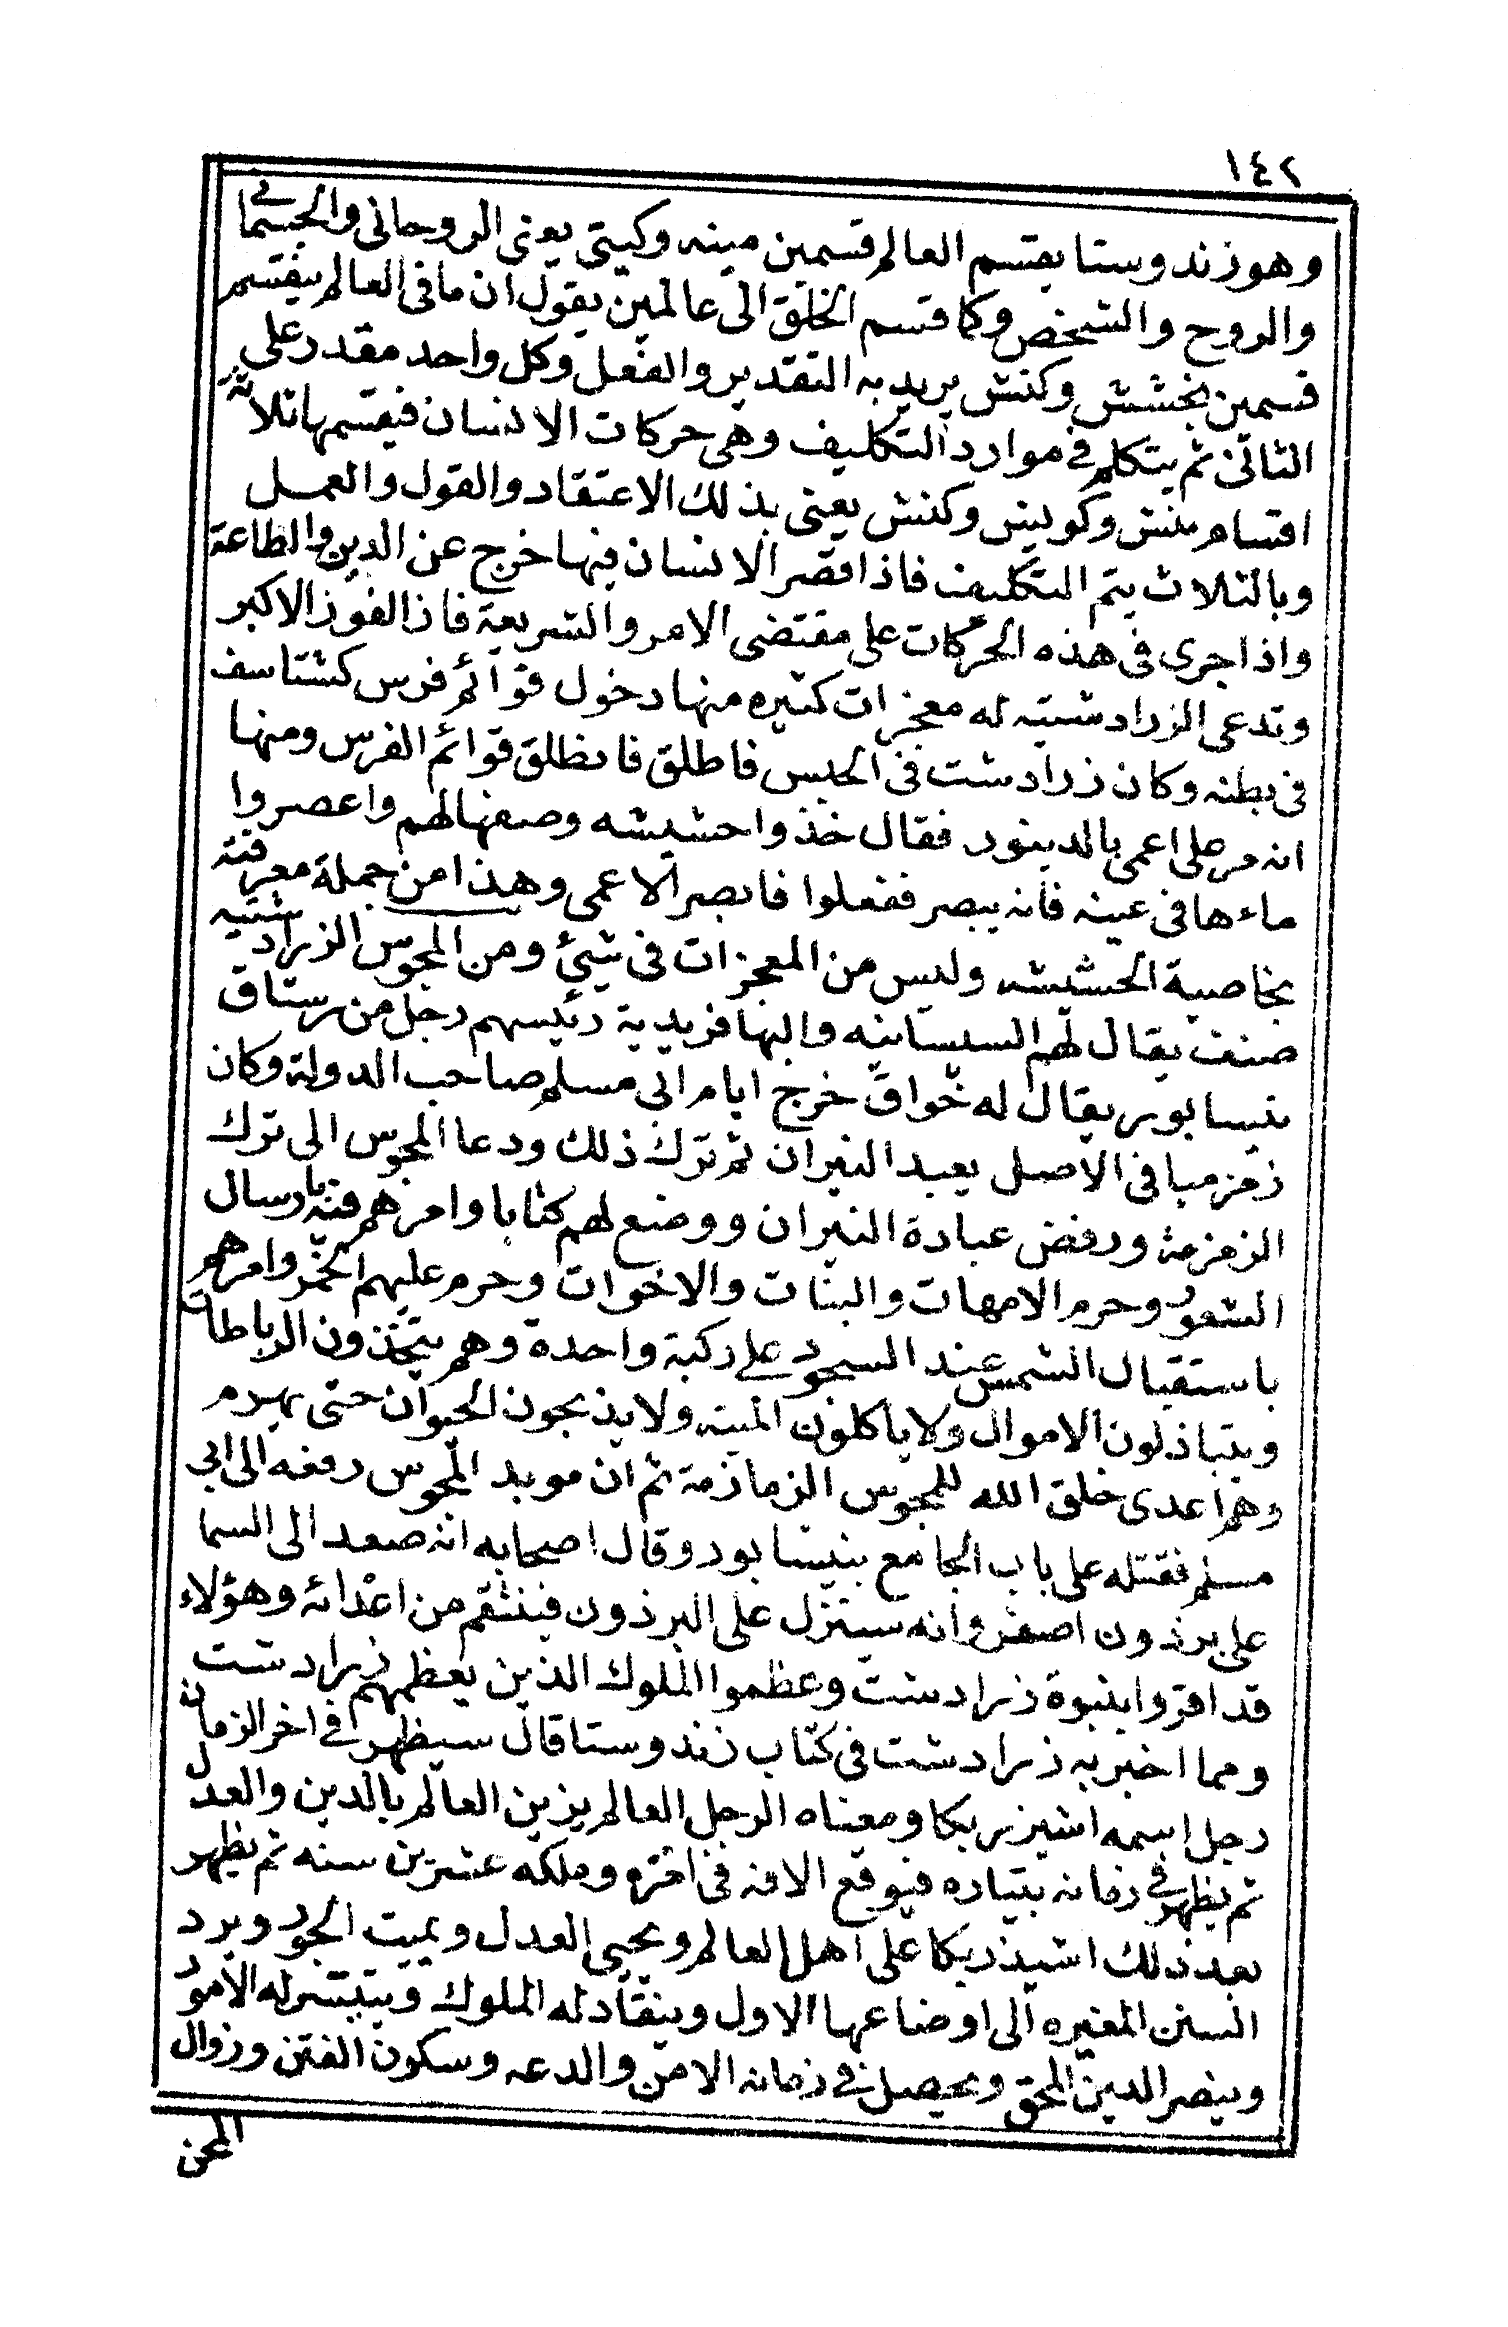 ١٤٢
وهو زند وستا يقسم العالم قسمين مينه وكيتى يعنى الروحانى والجسمانى
والروح والشخص وكما قسم الخلق الى عالمين يقول ان ما فى العالم ينقسم
قسمين بخشش وكنش يريد به التقدير والفعل وكل واحد مقدر على
الثانى ثم يتكلم فى موارد التكليف وهى حركات الانسان فيقسمها ثلاثة
اقسام منش وكويش وكنش يعنى بذلك الاعتقاد والقول والعمل
وبالثلاث يتم التكليف فاذا قصر الانسان فيها خرج عن الدين والطاعة
واذا جرى فى هذه الحركات على مقتضى الامر والشريعة فاز الفوز الاكبر
وتدعى الزرادشتيه له معجزات كثيره منها دخول قوائم فرس كشتاسف
فى بطنه وكان زرادشت فى الحبس فاطلق فانطلق قوائم الفرس ومنها
انه مر على اعمى بالدينور فقال خذوا حشيشه وصفها لهم واعصروا
ماءها فى عينه فانه يبصر ففعلوا فابصر الاعمى وهذا من جملة معرفته
بخاصية الحشيشه وليس من المعجزات فى شيئ ومن المجوس الزرادشتيه
صنف يقال لهم السيسانيه والبهافريدية رئيسهم رجل من رستاق
نيسابور يقال له خواف خرج ايام ابى مسلم صاحب الدولة وكان
زمزميا فى الاصل يعبد النيران ثم ترك ذلك ودعا المجوس الى ترك
الزمزمة ورفض عبادة النيران ووضع لهم كتابا وامرهم فيه بارسال
الشعور وحرم الامهات والبنات والاخوات وحرم عليهم الخمر وامرهم
باستقبال الشمس عند السجود على ركبة واحدة وهم يتخذون الرباطات
ويتباذلون الاموال ولا ياكلون الميته ولا يذبحون الحيوان حتى يهرم
وهم اعدى خلق الله للمجوس الزمازمة ثم ان موبد المجوس رفعه الى ابى
مسلم فقتله على باب الجامع بنيسابور وقال اصحابه انه صعد الى السما
على برذون اصفر وانه سينزل على البرذون فينتقم من اعدائه وهؤلاء
قد اقروا بنبوة زرادشت وعظموا الملوك الذين يعظمهم زرادشت
ومما اخبر به زرادشت فى كتاب زند وستا قال سيظهر فى اخر الزمان
رجل اسمه اشيزريكا ومعناه الرجل العالم يزين العالم بالدين والعدل
ثم يظهر فى زمانه بتياره فيوقع الافه فى اخره وملكه عشرين سنه ثم يظهر
بعد ذلك اشيذريكا على اهل العالم ويحيى العدل ويميت الجور ويرد
السنن المغيره الى اوضاعها الاول وينقاد له الملوك ويتيسر له الامور
وينصر الدين الحق ويحصل فى زمانه الامن والدعه وسكون الفتن وزوال
المحن